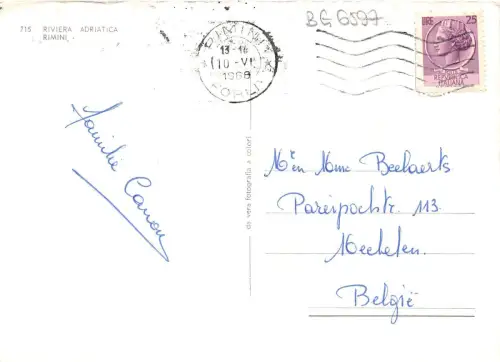 715 RIVIERA ADRIATICA
RIMINI
BG 6597
RIMINI
13-14
10-VI
1968
FORLI
LIRE 25
REPUBBLICA
ITALIANA
Familie Canon
da vera fotografia a colori
Mr en Mme Beelaerts
113.
Mechelen.
België